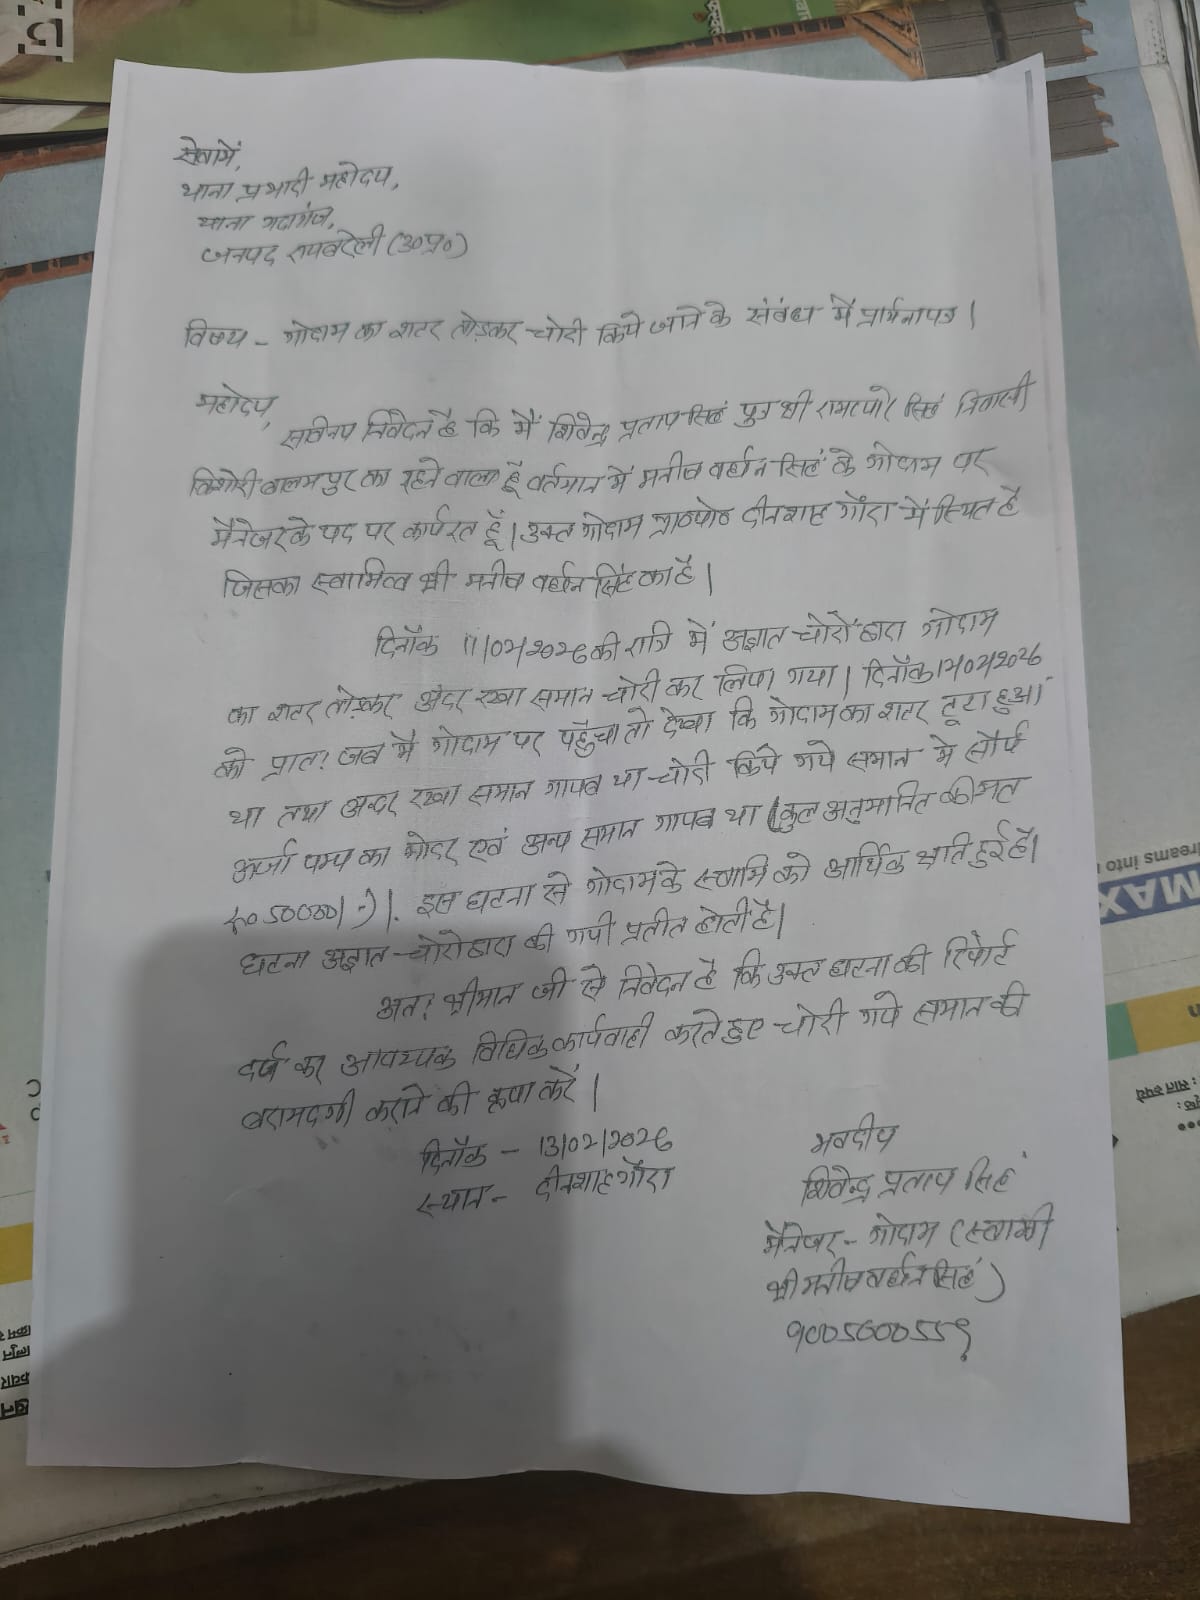 सेवामें,
थाना प्रभारी महोदय,
थाना गदागंज,
जनपद रायबरेली (उ०प्र०)
विषय - गोदाम का शटर तोड़कर चोरी किये जाने के संबंध में प्रार्थनापत्र।
महोदय,
सविनय निवेदन है कि मैं शिवेन्द्र प्रताप सिहं पुत्र श्री सिहं निवासी
बालमपुर का रहने वाला हूँ वर्तमान में मनीष वर्धन सिहं के गोदाम पर
मैनेजर के पद पर कार्यरत हूँ। उक्त गोदाम ग्रा०पो० दीनशाह गौरा में स्थित है
जिसका स्वामित्व श्री मनीष वर्धन सिंह का है।
दिनाँक 11/02/2026 की रात्रि में अज्ञात चोरों द्वारा गोदाम
का शटर तोड़कर अंदर रखा समान चोरी कर लिया गया। दिनाँक 12/02/2026
को प्रात: जब मै गोदाम पर पहुँचा तो देखा कि गोदाम का शटर टूटा हुआ
था तथा अन्दर रखा समान गायब था चोरी किये गये समान मे सौर्य
ऊर्जा पम्प का मोटर एवं अन्य समान गायब था (कुल अनुमानित कीमत
रू० 50000/-)। इस घटना से गोदाम के स्वामि को आर्थिक क्षति हुई है।
घटना अज्ञात चोरो द्वारा की गयी प्रतीत होती है।
अत: श्रीमान जी से निवेदन है कि उक्त घटना की रिपोर्ट
दर्ज कर आवश्यक विधिक कार्यवाही करते हुए चोरी गये समान की
बरामदगी कराने की कृपा करें।
दिनाँक - 13/02/2026
स्थान - दीनशाह गौरा
भवदीय
शिवेन्द्र प्रताप सिहं
मैनेजर - गोदाम (स्वामी
श्री मनीष वर्धन सिहं)
MAX